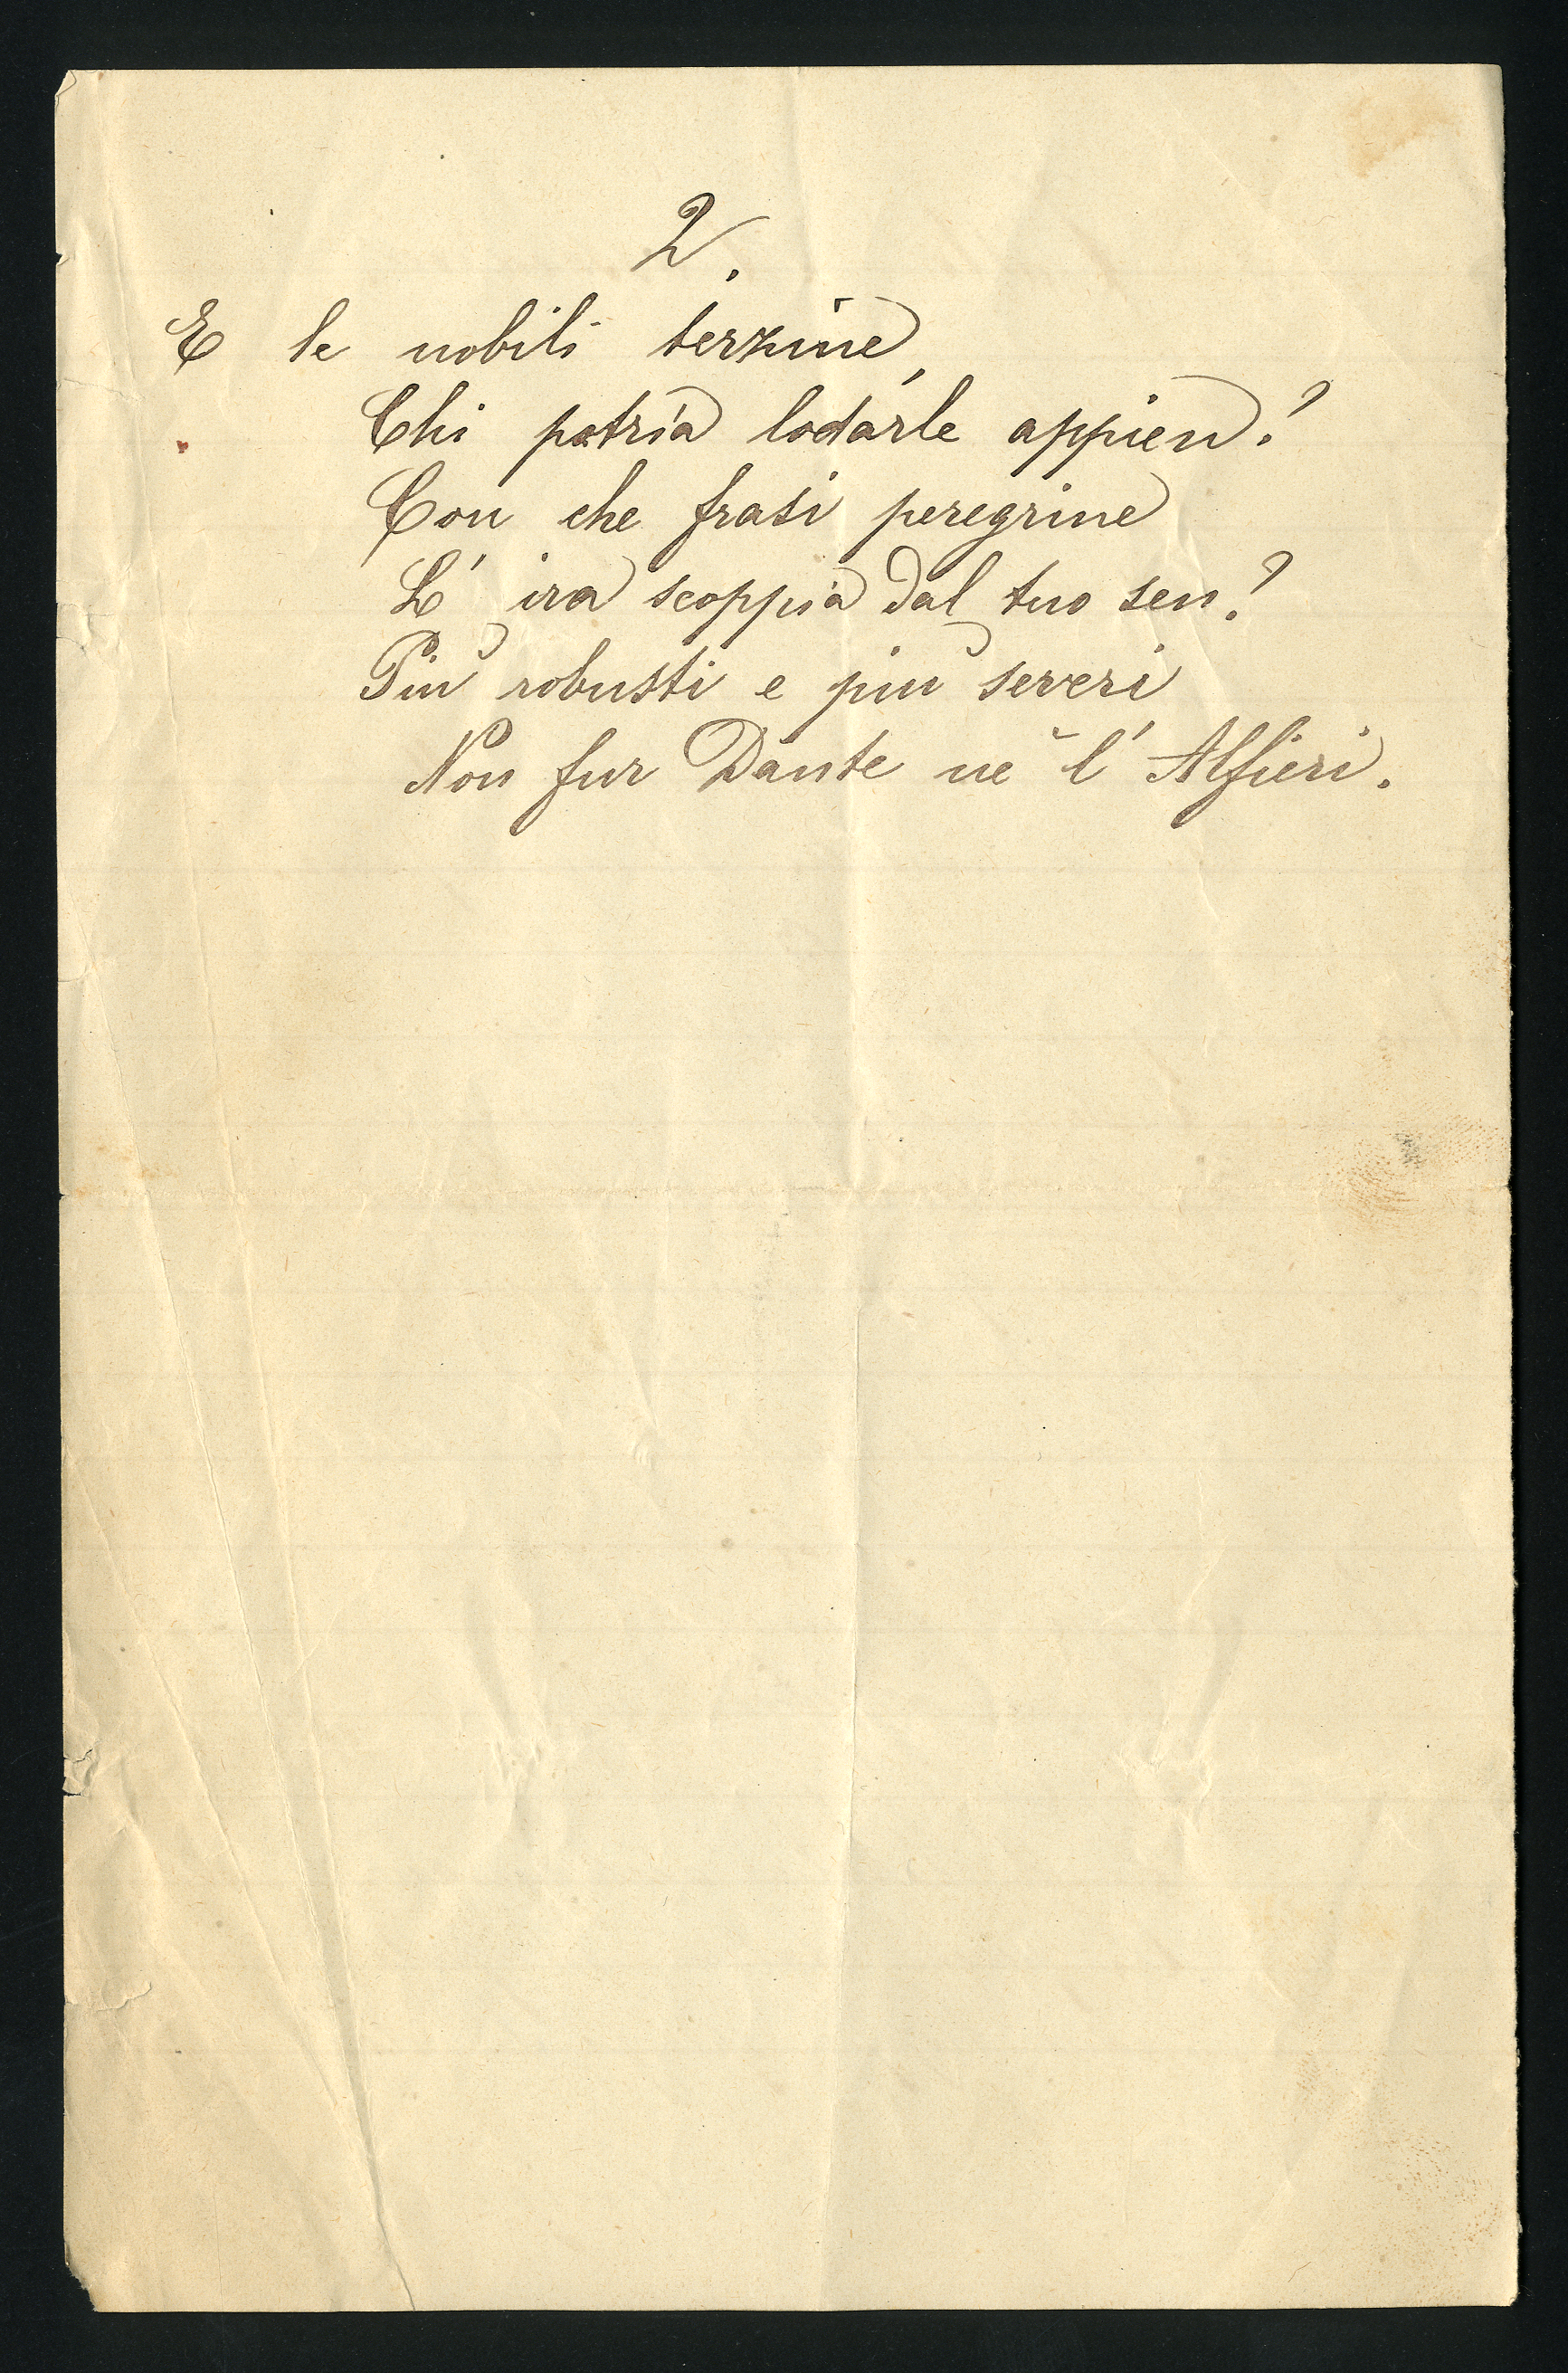 2.
E le nobili terzine,
Chi potria lodarle appien?
Con che frasi peregrine
L' ira scoppia dal tuo sen?
Più robusti e più severi
Non fur Dante nè l' Alfieri.